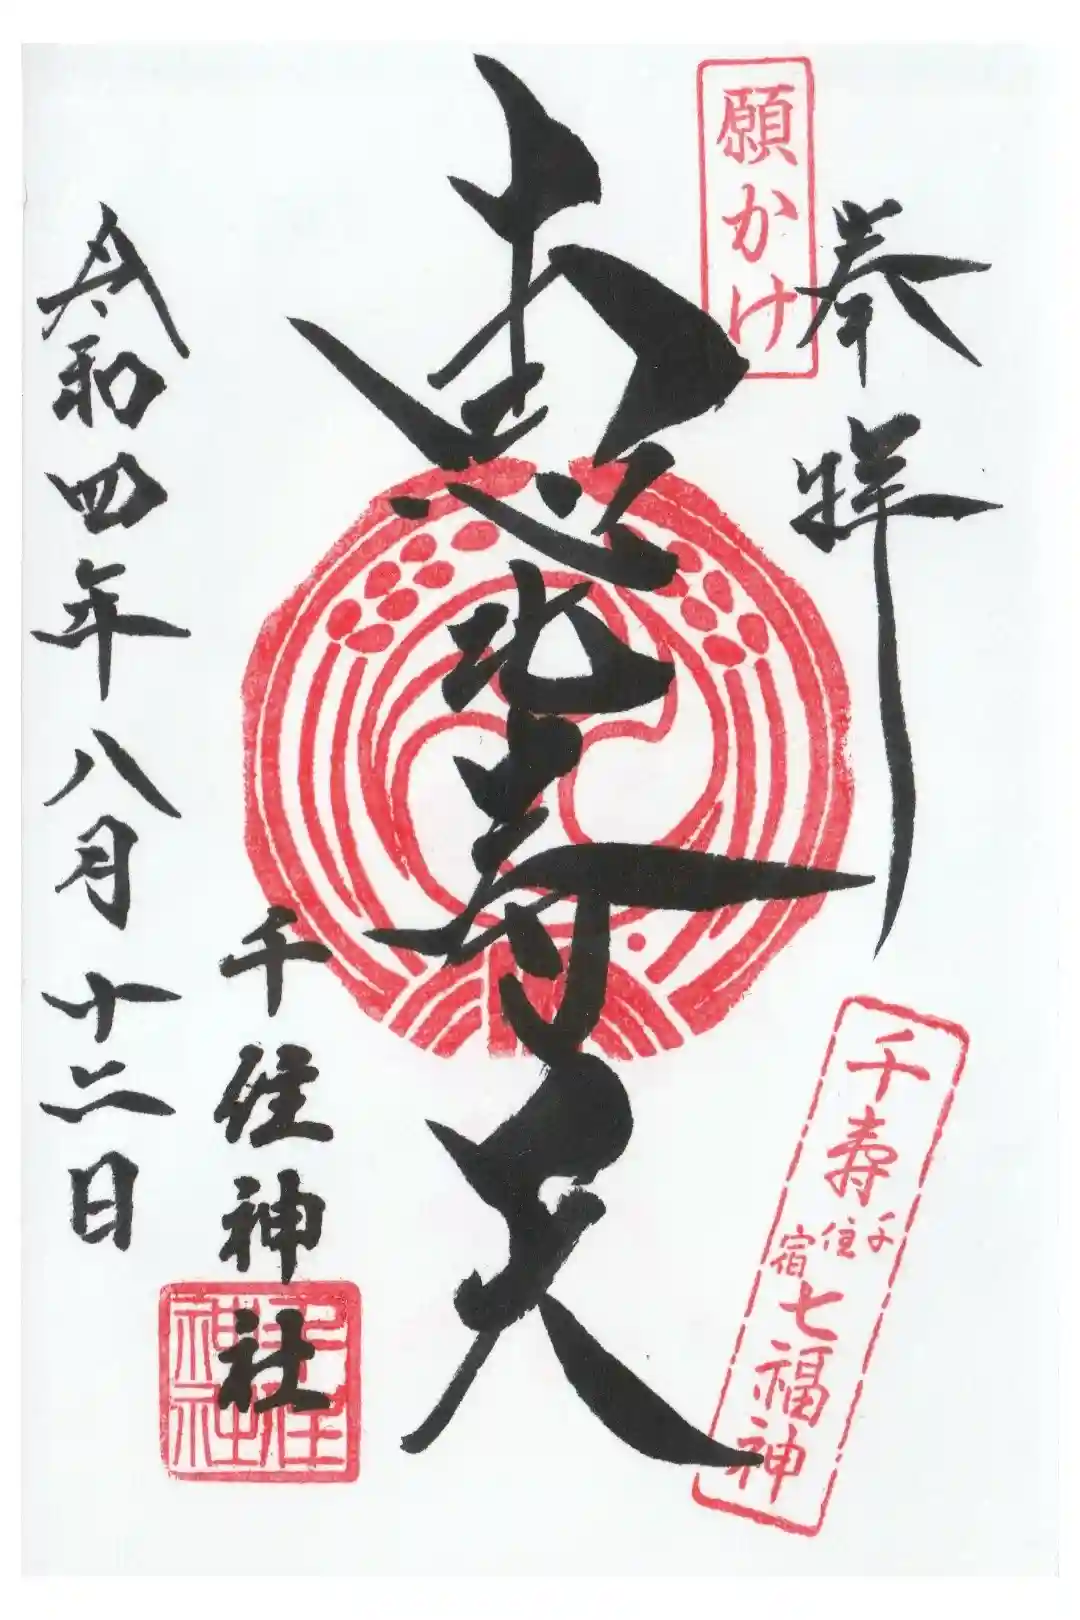 願かけ
奉拝
恵比寿天
千寿
千住
宿
七福神
千住神社
千住神社
令和四年八月十二日